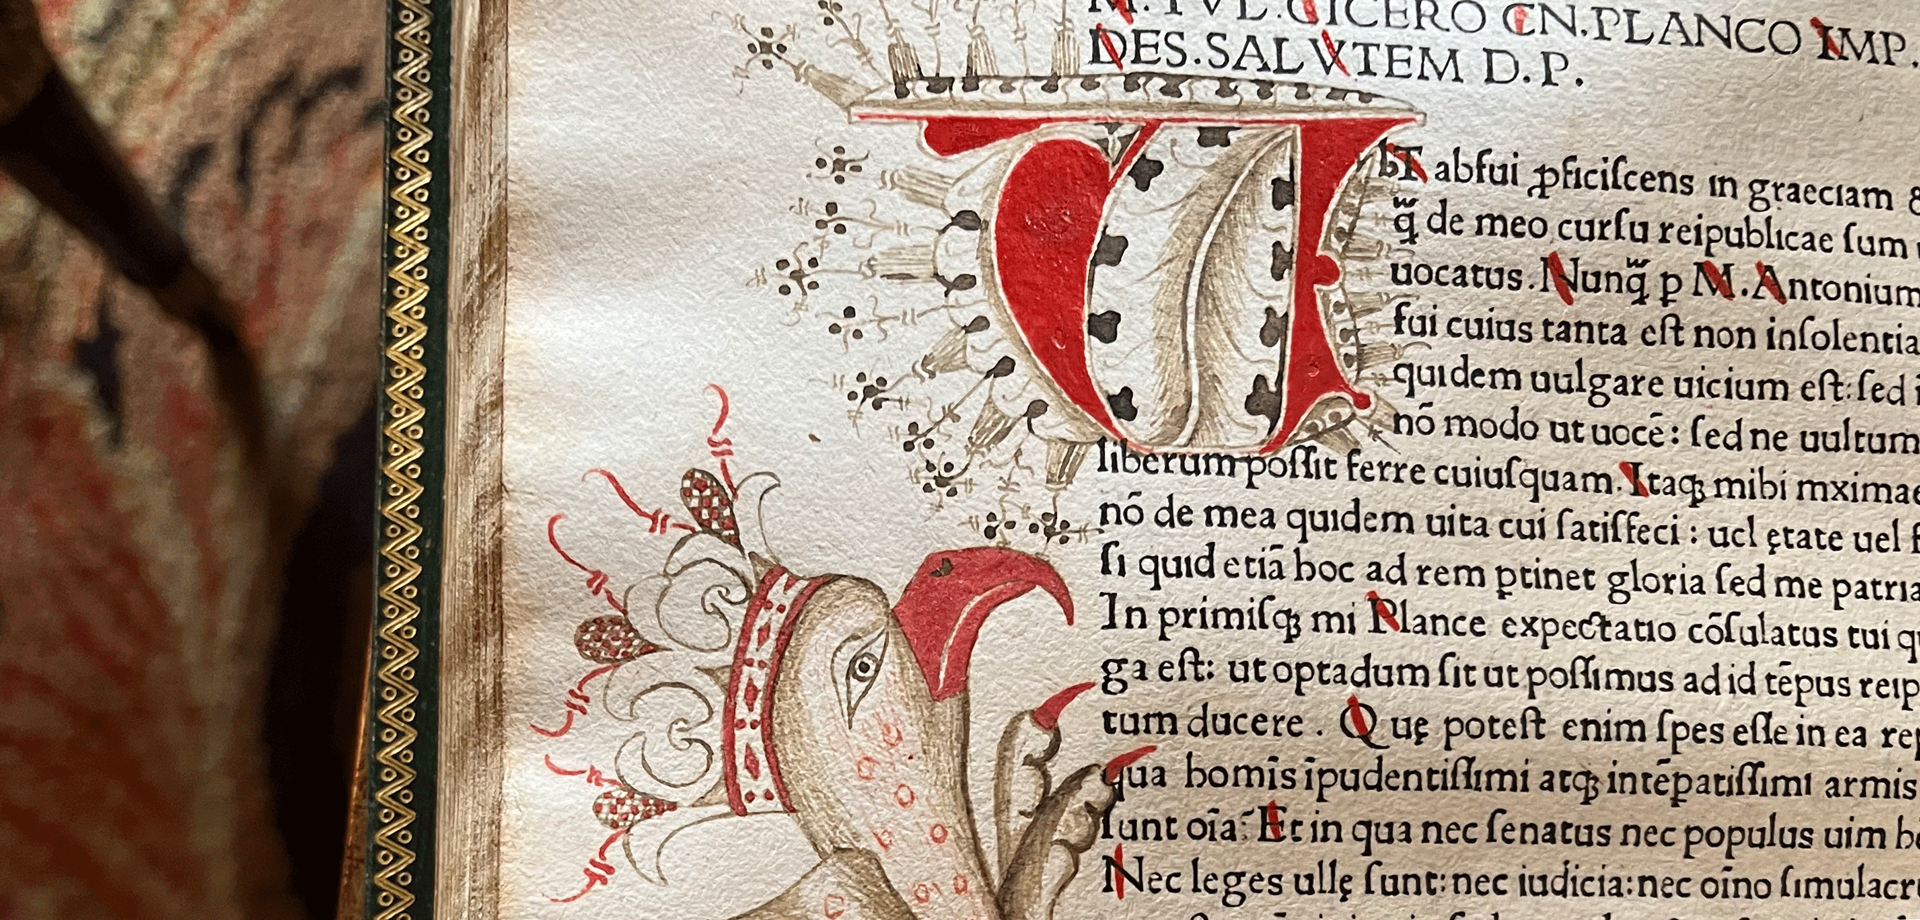 M. TVL. CICERO CN. PLANCO IMP.
DES. SALVTEM D. P.
VbI abfui ꝓficiſcens ın graecıam &
q̃ de meo curſu reipublıcae ſum
uocatus. Nunq̃ p M. Antonium
fui cuius tanta eſt non inſolentia
quıdem uulgare uicium eſt: ſed i
nō modo ut uocē: ſed ne uultum
liberum poſſit ferre cuiuſquam. Itaqꝫ mıbi mxımae
nō de mea quıdem uita cui ſatiſfeci: ucl ętate uel
ſi quıd etiā boc ad rem ꝑtinet gloria ſed me patrıa
In primiſqꝫ mi Plance expectatıo cōſulatus tui
ga eſt: ut optadum ſit ut poſſimus ad id tēpus reıp
tum ducere. Quę poteſt enim ſpes eſſe in ea
qua bomīs īpudentiſſımi atqꝫ intēpatiſſımı armis
ſunt oīa: Et in qua nec ſenatus nec populus uim
Nec leges ullę ſunt: nec iudicia: nec oīno ſımulacr